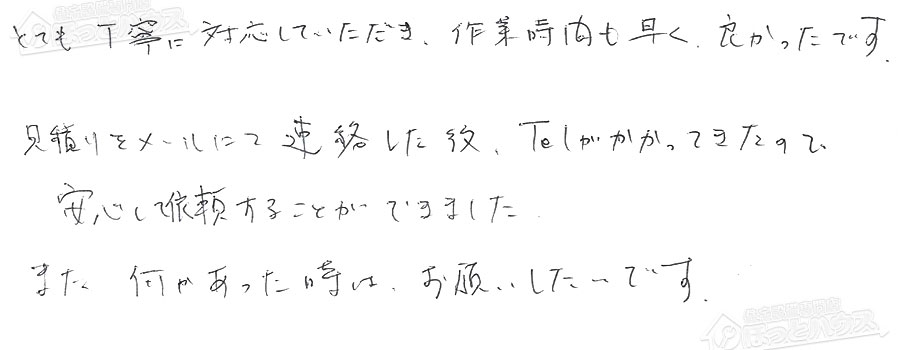 とても丁寧に対応していただき、作業時間も早く、良かったです。
見積りをメールにて連絡した後、Telがかかってきたので、
安心して依頼することができました。
また、何かあった時は、お願いしたいです。
ほっとハウス